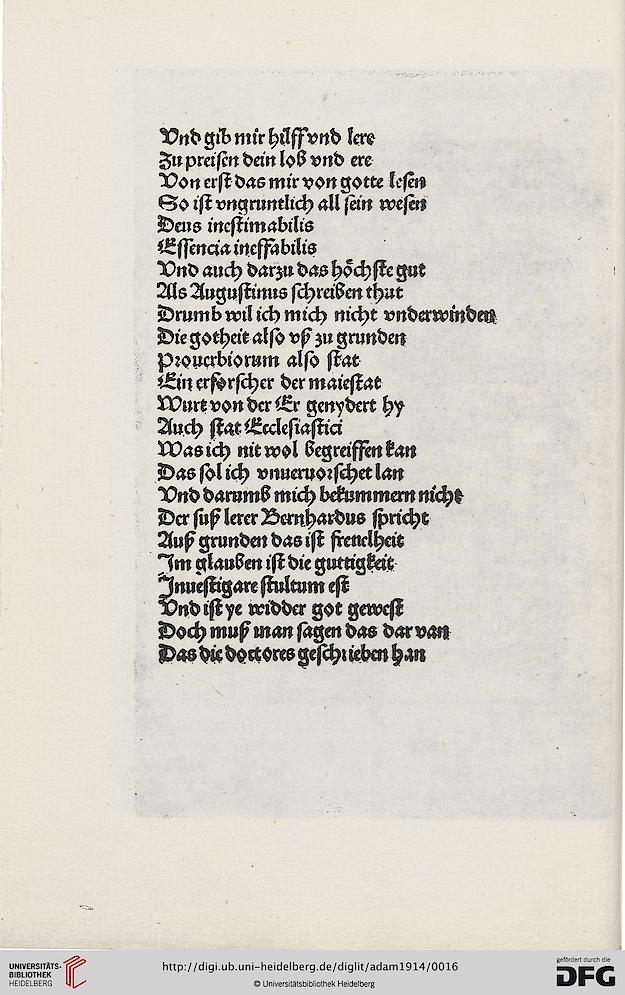 Vnd gib mir hilff vnd lere
Zu preisen dein lob vnd ere
Von erst das mir von gotte lesen
So ist vngruntlich all sein wesen
Deus inestimabilis
Essencia ineffabilis
Vnd auch darzu das höchste gut
Als Augustinus schreiben thut
Drumb wil ich mich nicht vnderwinden
Die gotheit also vß zu grunden
Prouerbiorum also stat
Ein erforscher der maiestat
Wurt von der Er genydert hy
Auch stat Ecclesiastici
Was ich nit wol begreiffen kan
Das sol ich vnueruorschet lan
Vnd darumb mich bekummern nicht
Der suß lerer Bernhardus spricht
Auß grunden das ist freuelheit
Im glauben ist die guttigkeit
Inuestigare stultum est
Vnd ist ye widder got gewest
Doch muß man sagen das dar van
Das die doctores geschrieben han
UNIVERSITÄTS-
BIBLIOTHEK
HEIDELBERG
http://digi.ub.uni-heidelberg.de/diglit/adam1914/0016
© Universitätsbibliothek Heidelberg
gefördert durch die
DFG